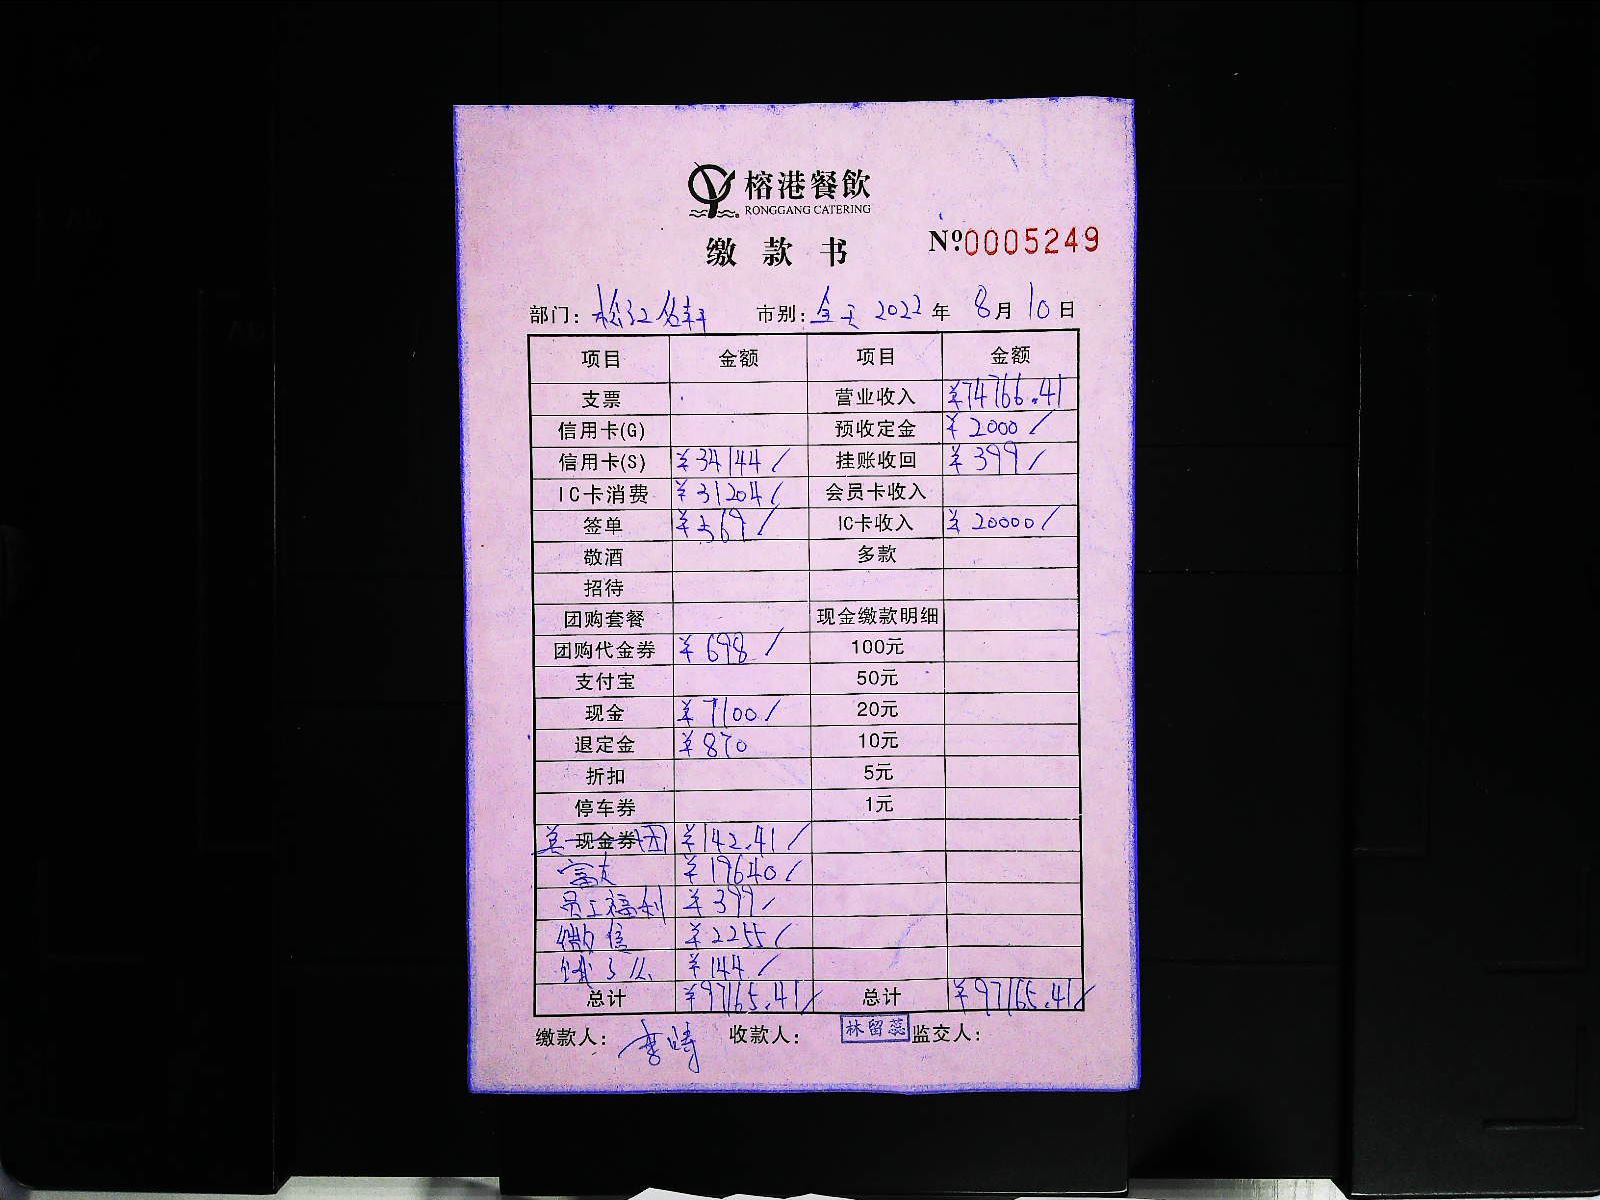 榕港餐飲
RONGGANG CATERING
缴款书
Nº0005249
部门：松江名轩 市别：全天 2022年 8月10日
项目 金额 项目 金额
支票 营业收入 ¥74766.41
信用卡(G) 预收定金 ¥2000/
信用卡(S) ¥34144/ 挂账收回 ¥399/
IC卡消费 ¥31204/ 会员卡收入
签单 ¥569/ IC卡收入 ¥20000/
敬酒 多款
招待
团购套餐 现金缴款明细
团购代金券 ¥698/ 100元
支付宝 50元
现金 ¥7100/ 20元
退定金 ¥870 10元
折扣 5元
停车券 1元
美现金券团 ¥142.41/
富友 ¥19640/
员工福利 ¥399/
微信 ¥2255/
饿了么 ¥144/
总计 ¥97165.41/ 总计 ¥97165.41/
缴款人： 收款人： 林留蕊 监交人：